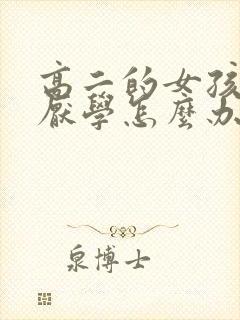 高二的女孩
厭學怎麼办
泉博士